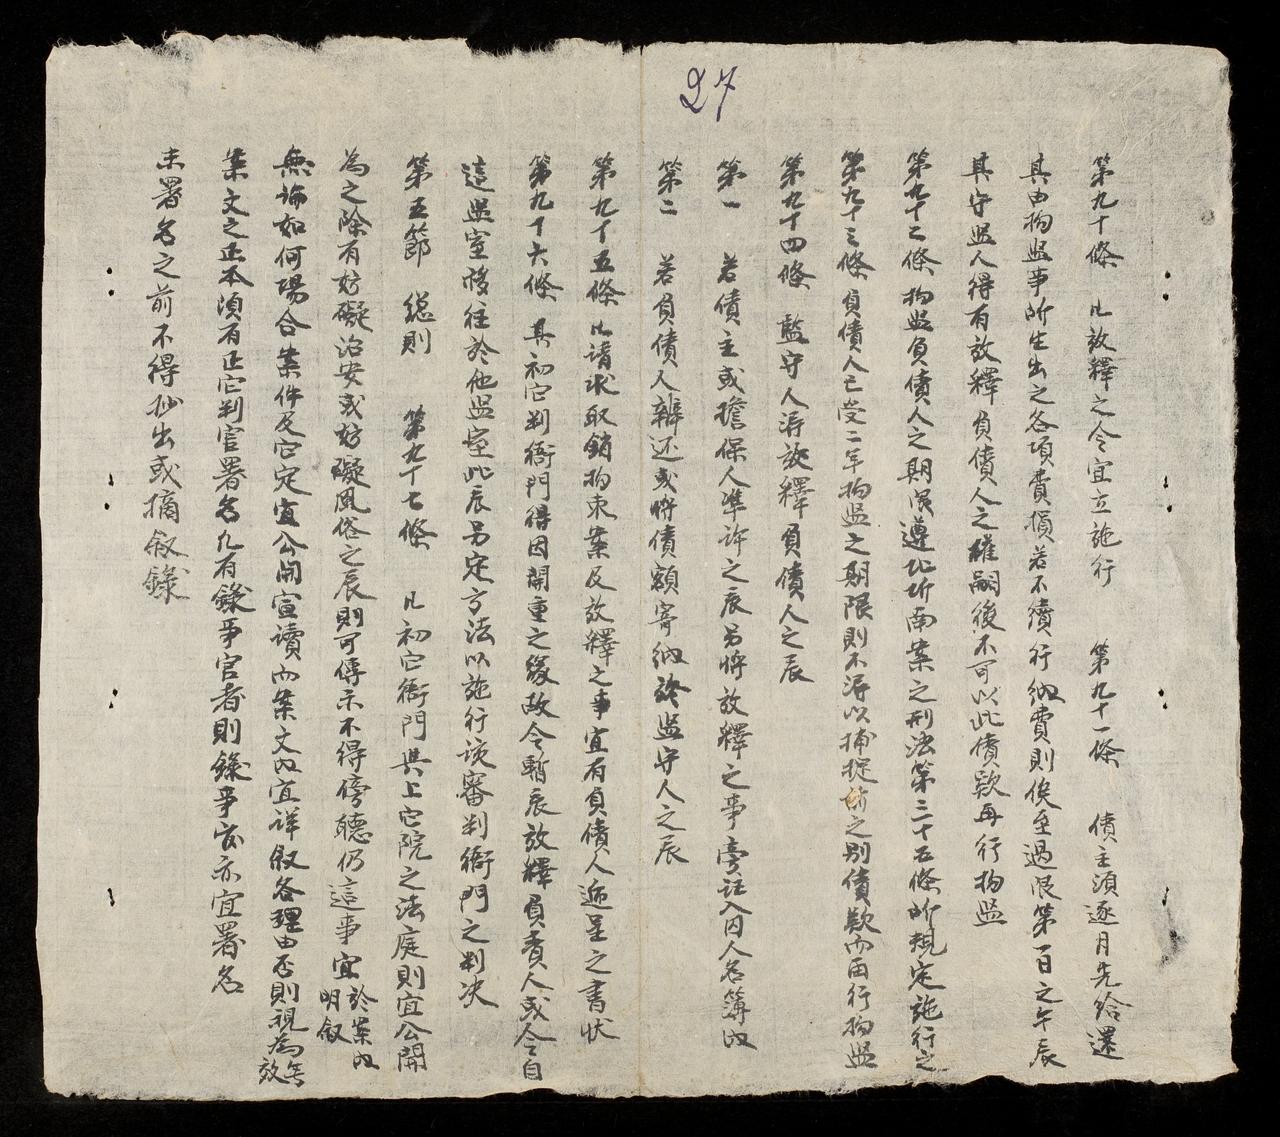 27
第九十條 凡放釋之令宜立施行 第九十一條 債主須逐月先給還
其由拘监事所生出之各項費損若不續行納費則俟至過限第一日之午辰
其守监人得有放釋負債人之權嗣後不可以此債欵再行拘监
第九十二條 拘监負債人之期限遵北圻南案之刑法第三十五條所規定施行之
第九十三條 負債人已受二年拘监之期限則不得以捕捉前之別債欵而再行拘监
第九十四條 監守人得放釋負債人之辰
第一 若債主或擔保人準許之辰另將放釋之事旁註入囚人名簿内
第二 若負債人辦还或將債額寄納於监守人之辰
第九十五條 凡請求取銷拘束案及放釋之事宜有負債人遞呈之書状
第九十六條 其初它判衙門得因關重之緣故令暫辰放釋負責人或令自
這监室移往於他监室此辰另定方法以施行該審判衙門之判决
第五節 總則 第九十七條 凡初它衙門與上它院之法庭則宜公開
為之除有妨礙治安或妨礙風俗之辰則可傳示不得傍聽仍這事宜於案内明叙
無論如何場合案件及它定宜公開宣讀而案文内宜詳叙各理由否則視為無效
案文之正本須有正它判官署名凡有錄事官者則錄事官亦宜署名
未署名之前不得抄出或摘叙錄